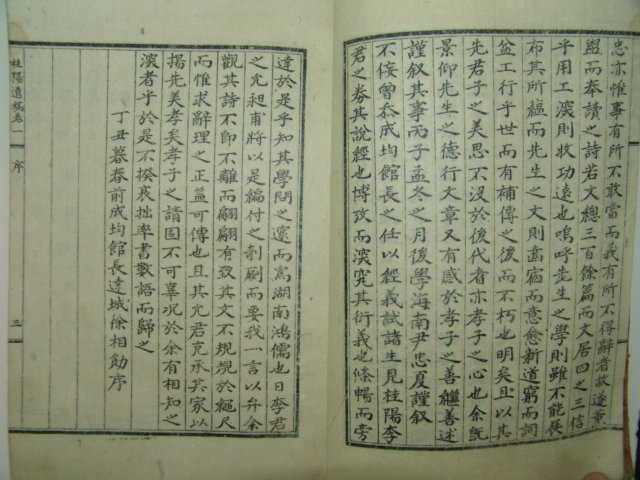 忠亦惟事有所不敢當而我有所不得辭者故遂薰
盥而奉讀之詩若文總三百餘篇而文居四之三信
乎用工深則收功遠也嗚呼先生之學則雖不能使
布其所蘊而先生之文則啬宿而意愈新道窮而詞
益工行乎世而有補傳之後而不朽也明矣且以其
先君子之美思不沒於後代者亦孝子之心也余旣
景仰先生之德行文章又有感於孝子之善繼善述
謹叙其事丙子孟冬之月後學海南尹忠夏謹叙
不侫曾忝成均館長之任以經義試諸生見桂陽李
君之券其說經也博攷而深究其衍義也條暢而旁
達於是乎知其學問之邃而爲湖南鴻儒也日李君
之允昶甫將以是編付之剞劂而要我一言以弁余
觀其詩不卽不離而翩翩有致其文不規規於繩尺
而惟求辭理之正益可傳也且其允君克承其家以
揚先美孝矣孝子之請固不可辜况於余有相知之
深者乎於是不揆衰拙率書數語而歸之
丁丑暮春前成均館長達城徐相勛序
桂陽遺稿卷一 序 三